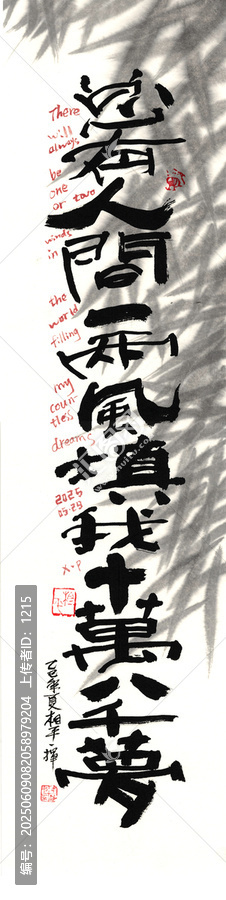 总有人間一两風填我十萬八千夢
There
will
always
be
one
or two
winds
in
the
world
filling
my
coun-
tless
dreams
2025
05.29
X·P
乙巳夏相平
编号：20250609082058979204 上传者ID：1215